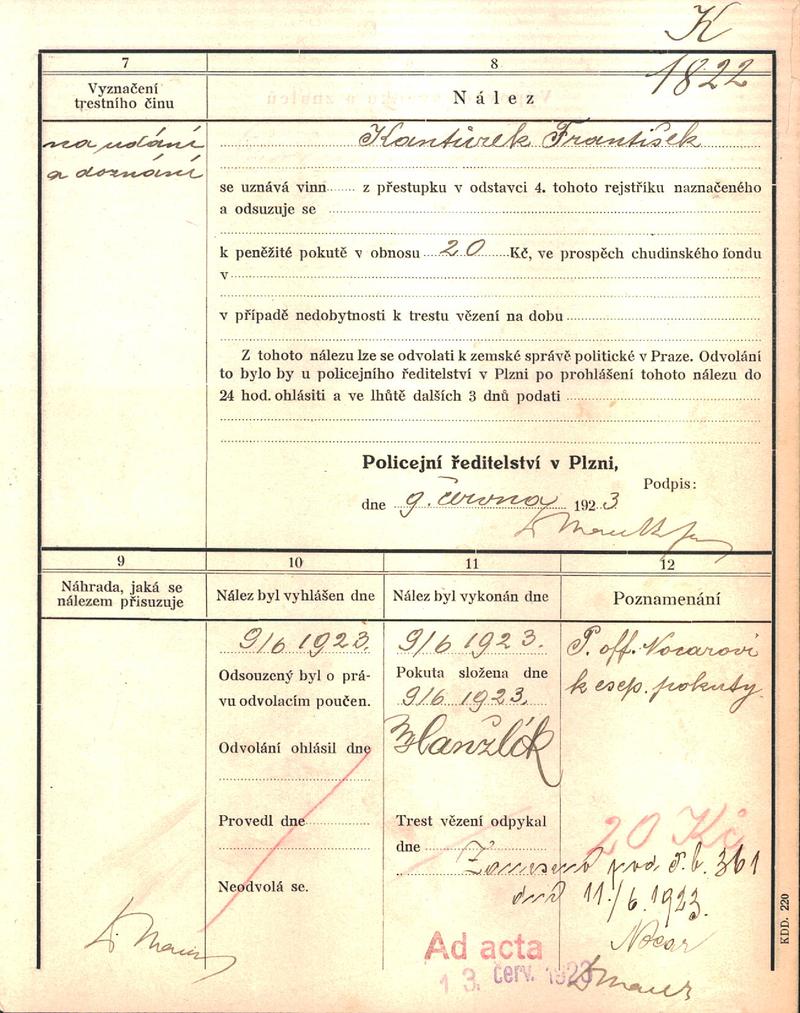 K
1822
7
Vyznačení
trestního činu
8
Nález
na udání
a doznání
Kantůrek František
se uznává vinn z přestupku v odstavci 4. tohoto rejstříku naznačeného
a odsuzuje se
k peněžité pokutě v obnosu 20 Kč, ve prospěch chudinského fondu
v
v případě nedobytnosti k trestu vězení na dobu
Z tohoto nálezu lze se odvolati k zemské správě politické v Praze. Odvolání
to bylo by u policejního ředitelství v Plzni po prohlášení tohoto nálezu do
24 hod. ohlásiti a ve lhůtě dalších 3 dnů podati
Policejní ředitelství v Plzni,
Podpis:
dne 9. června 1923
9
Náhrada, jaká se
nálezem přisuzuje
10
Nález byl vyhlášen dne
9/6 1923.
Odsouzený byl o prá-
vu odvolacím poučen.
Odvolání ohlásil dne
Provedl dne
Neodvolá se.
11
Nález byl vykonán dne
9/6 1923.
Pokuta složena dne
9/6 1923.
Trest vězení odpykal
dne
12
Poznamenání
P. off. Nocarovi
k esep. pokuty.
20 Kč
Zaneseno pod P. b. 361
dne 11./6. 1923.
Nocar
Ad acta
13. červ. 1923
KDD. 220